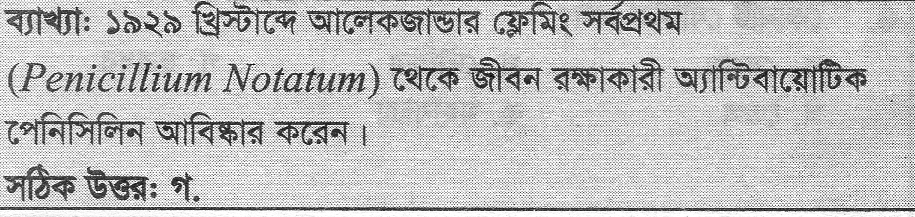 ব্যাখ্যা: ১৯২৯ খ্রিস্টাব্দে আলেকজান্ডার ফ্লেমিং সর্বপ্রথম
(Penicillium Notatum) থেকে জীবন রক্ষাকারী অ্যান্টিবায়োটিক
পেনিসিলিন আবিষ্কার করেন।
সঠিক উত্তর: গ.